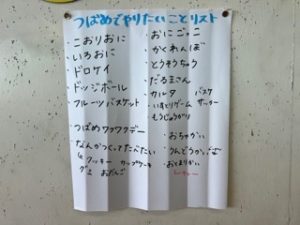 つばめでやりたいことリスト
・こおりおに
・いろおに
・ドロケイ
・ドッジボール
・フルーツバスケット
・つばめワクワクデー
・なんかつくってたべたい
クッキー カップケーキ
おだんご
・おにごっこ
・かくれんぼ
・とうそうちゅう
・だるまさん
・カルタ バスケ
・いすとりゲーム サッカー
・もうじゅうがり
・おちゃかい
・うんどうかい
・おとまりかい